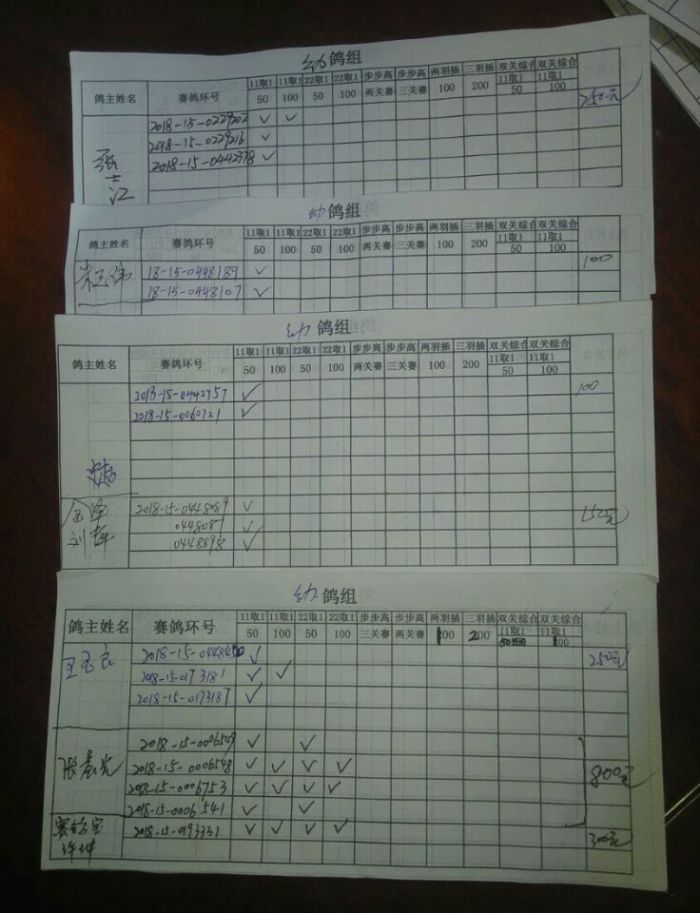 幼鸽组
鸽主姓名 赛鸽环号 11取1 11取1 22取1 22取1 步步高 步步高 两羽插 三羽插 双关综合 双关综合
50 100 50 100 两关赛 三关赛 100 200 11取1 11取1
50 100
250元
2018-15-0229202 ✓ ✓
2018-15-0229216 ✓
张士江 2018-15-0442378 ✓
幼鸽组
鸽主姓名 赛鸽环号 11取1 11取1 22取1 22取1 步步高 步步高 两羽插 三羽插 双关综合 双关综合
50 100 50 100 两关赛 三关赛 100 200 11取1 11取1
50 100
18-15-0448189 ✓ 100
18-15-0448107 ✓
幼鸽组
鸽主姓名 赛鸽环号 11取1 11取1 22取1 22取1 步步高 步步高 两羽插 三羽插 双关综合 双关综合
50 100 50 100 两关赛 三关赛 100 200 11取1 11取1
50 100
2018-15-0442757 ✓ 100
2018-15-0060721 ✓
2018-15-0448089 ✓ 150元
0448087 ✓
刘 0448898 ✓
幼鸽组
鸽主姓名 赛鸽环号 11取1 11取1 22取1 22取1 步步高 步步高 两羽插 三羽插 双关综合 双关综合
50 100 50 100 三关赛 两关赛 100 200 11取1 11取1
50 100
王玉良 2018-15-04484 ✓ 250元
2018-15-0173181 ✓ ✓
2018-15-0173187 ✓
2018-15-0006549 ✓ ✓
张 2018-15-0006548 ✓ ✓ ✓ ✓ 800元
2018-15-0006753 ✓ ✓ ✓ ✓
2018-15-0006541 ✓ ✓
2018-15-0193331 ✓ ✓ ✓ ✓ 300元